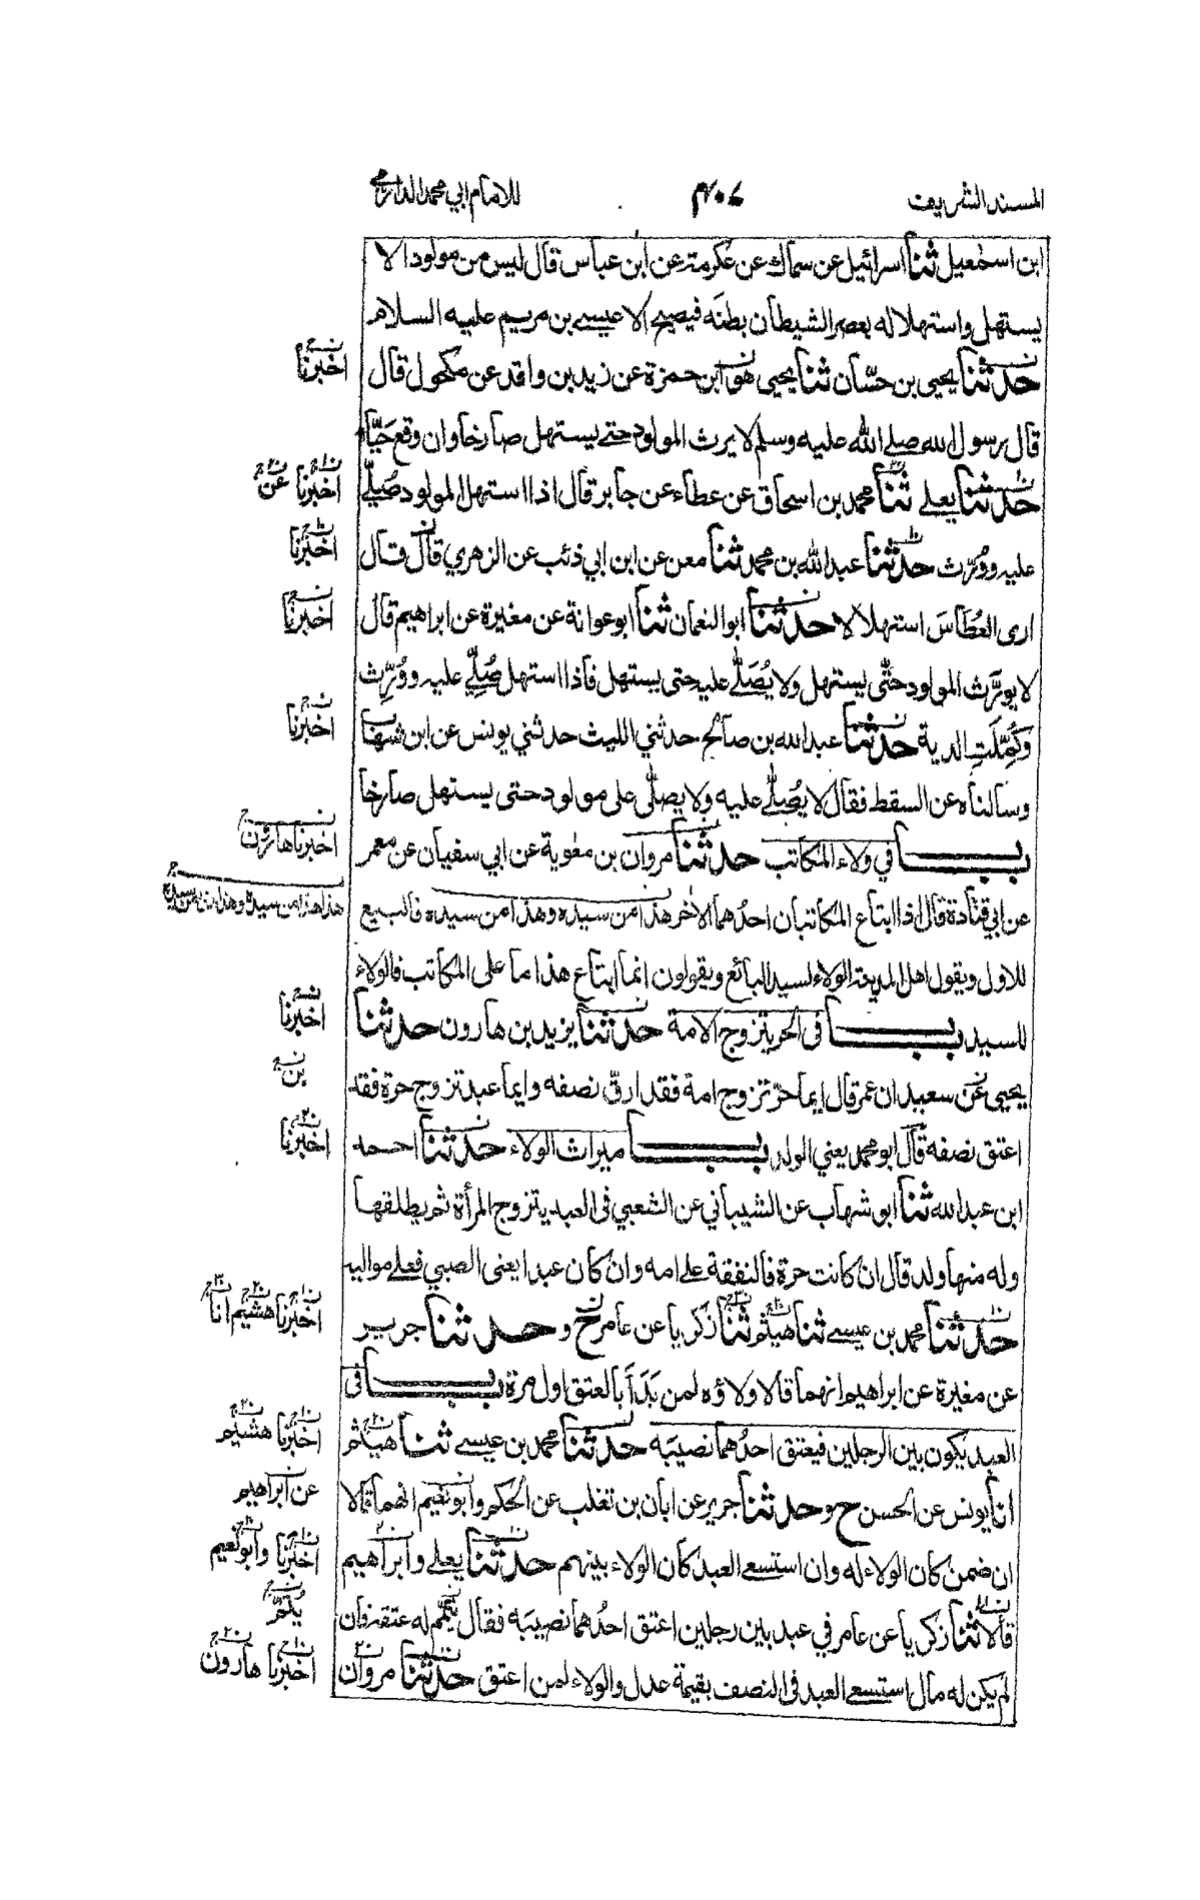 المسند الشريف ٤٠٧ للامام ابي محمد الدارمي
ابن اسمعيل ثنا اسرائيل عن سماك عن عكرمة عن ابن عباس قال ليس من مولود الا
يستهل واستهلاله بعصر الشيطان بطنه فيصيح الا عيسى بن مريم عليه السلام
حدثنا يحيى بن حسّان ثنا يحيى هو ابن حمزة عن زيد بن واقد عن مكحول قال
اخبرنا
قال رسول الله صلى الله عليه وسلم لا يرث المولود حتى يستهل صارخا وان وقع حَيّا
حدثنا يعلى ثنا محمد بن اسحاق عن عطاء عن جابر قال اذا استهل المولود صُلّي
اخبرنا عن
عليه ووُرّث حدثنا عبد الله بن محمد ثنا معن عن ابن ابي ذئب عن الزهري قال قال
اخبرنا
ارى العُطَاسَ استهلالا حدثنا ابو النعمان ثنا ابو عوانة عن مغيرة عن ابراهيم قال
اخبرنا
لا يورَّث المولود حتّى يستهل ولا يُصَلّى عليه حتى يستهل فاذا استهل صُلِّي عليه ووُرِّث
وكُمِّلَتِ الدية حدثنا عبد الله بن صالح حدثني الليث حدثني يونس عن ابن شهاب
اخبرنا
وسألناه عن السقط فقال لا يُصلّى عليه ولا يصلّى على مولود حتى يستهل صارخا
باب في ولاء المكاتب حدثنا مروان بن معوية عن ابي سفيان عن معمر
اخبرنا هارون
عن ابي قتادة قال اذا ابتاع المكاتبان احدُهما الآخر هذا من سيده وهذا من سيده فالبيع
هذا هذا من سيده وهذا من سيده
للاول ويقول اهل المدينة الولاء لسيد البائع ويقولون انما ابتاع هذا ما على المكاتب فالولاء
للسيد باب في الحر يتزوج الامة حدثنا يزيد بن هارون حدثنا
اخبرنا
يحيى عن سعيد ان عمر قال ايما حرّ تزوج امة فقد ارقّ نصفه وايما عبد تزوج حرة فقد
بن
اعتق نصفه قال ابو محمد يعني الولد باب ميراث الولاء حدثنا احمد
اخبرنا
ابن عبد الله ثنا ابو شهاب عن الشيباني عن الشعبي في العبد يتزوج المرأة ثم يطلقها
وله منها ولد قال ان كانت حرة فالنفقة على امه وان كان عبدا يعني الصبي فعلى مواليه
حدثنا محمد بن عيسى ثنا هيثم ثنا زكريا عن عامر ح و حدثنا جرير
اخبرنا هشيم انا
عن مغيرة عن ابراهيم انهما قالا ولاؤه لمن بَدَأ بالعتق اول مرة باب في
العبد يكون بين الرجلين فيعتق احدُهما نصيبَه حدثنا محمد بن عيسى ثنا هيثم
اخبرنا هشيم
انا يونس عن الحسن ح و حدثنا جرير عن ابان بن تغلب عن الحكم وابو نعيم انهما قالا
عن ابراهيم
ان ضمن كان الولاء له وان استسعى العبد كان الولاء بينهم حدثنا يعلى وابراهيم
اخبرنا وابو نعيم
قالا ثنا زكريا عن عامر في عبد بين رجلين اعتق احدُهما نصيبَه فقال يتمّم له عتقه فان
لم يكن له مال استسعى العبد في النصف بقيمة عدل والولاء لمن اعتق حدثنا مروان
اخبرنا هارون